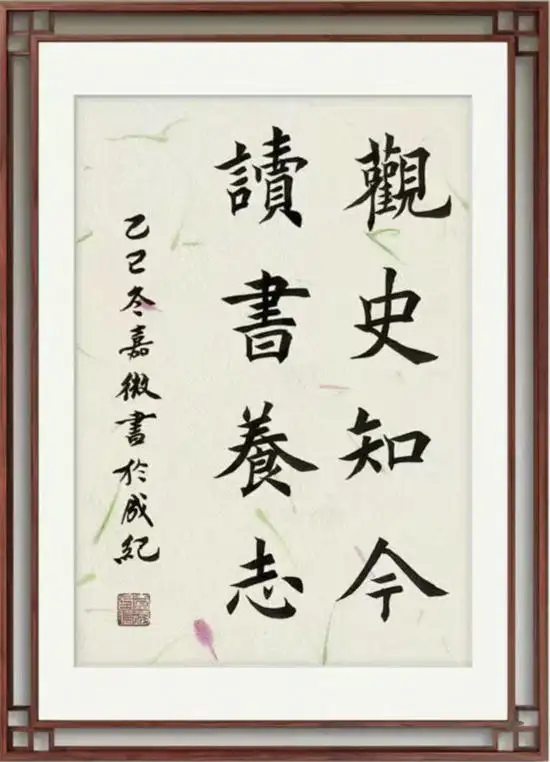 觀史知今
讀書養志
乙巳冬嘉微書於成紀